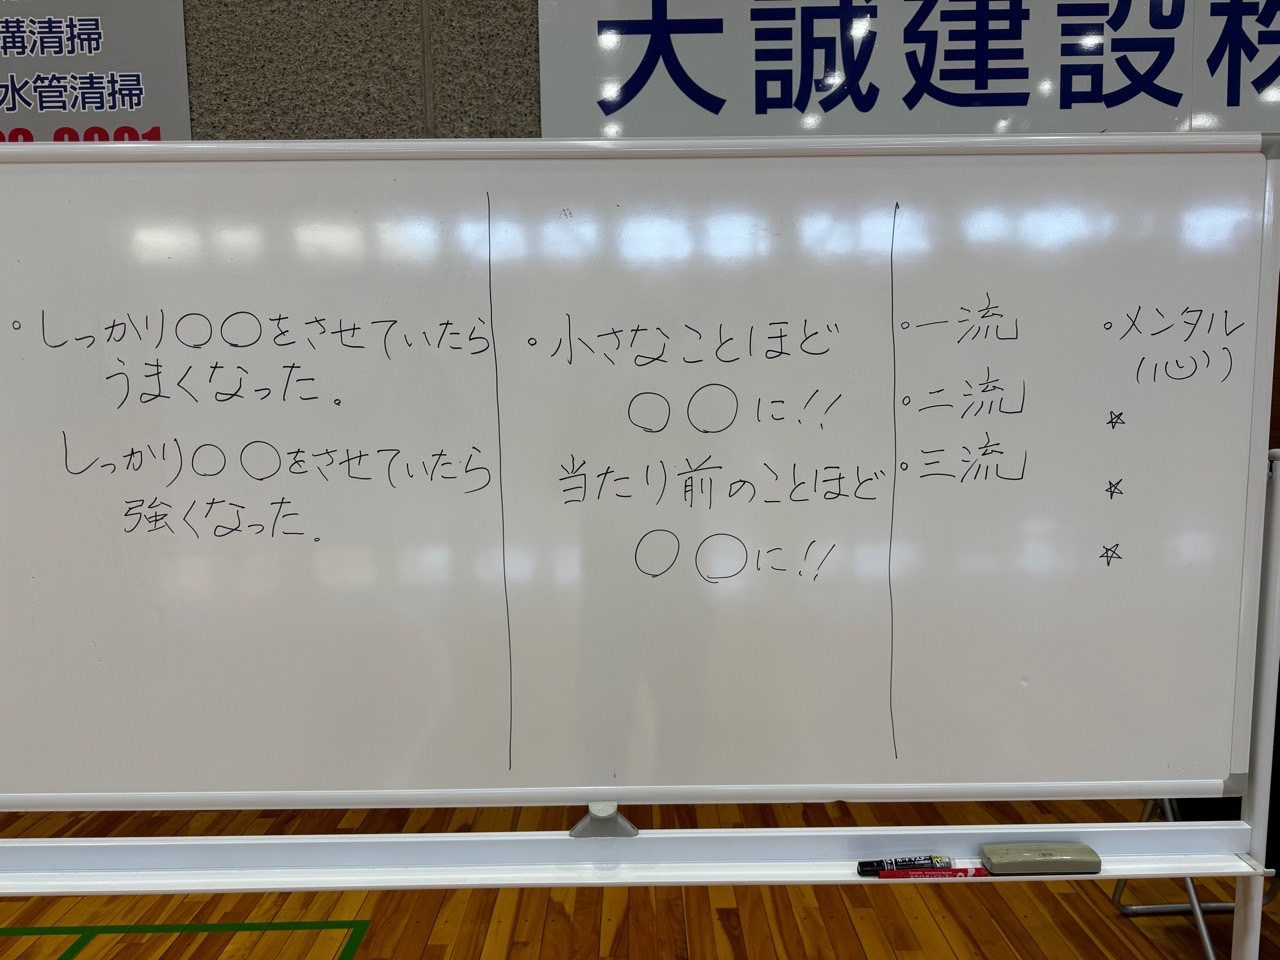 溝清掃
水管清掃
大誠建設株
・しっかり○○をさせていたら
うまくなった。
しっかり○○をさせていたら
強くなった。
・小さなことほど
○○に!!
当たり前のことほど
○○に!!
・一流
・二流
・三流
・メンタル
(心)
☆
☆
☆